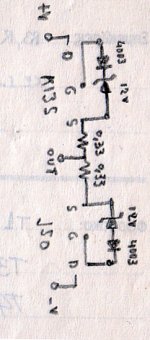 +V
4003
12V
D
G
S
K135
0,33
OUT
0,33
S
G
D
J50
12V
4003
-V